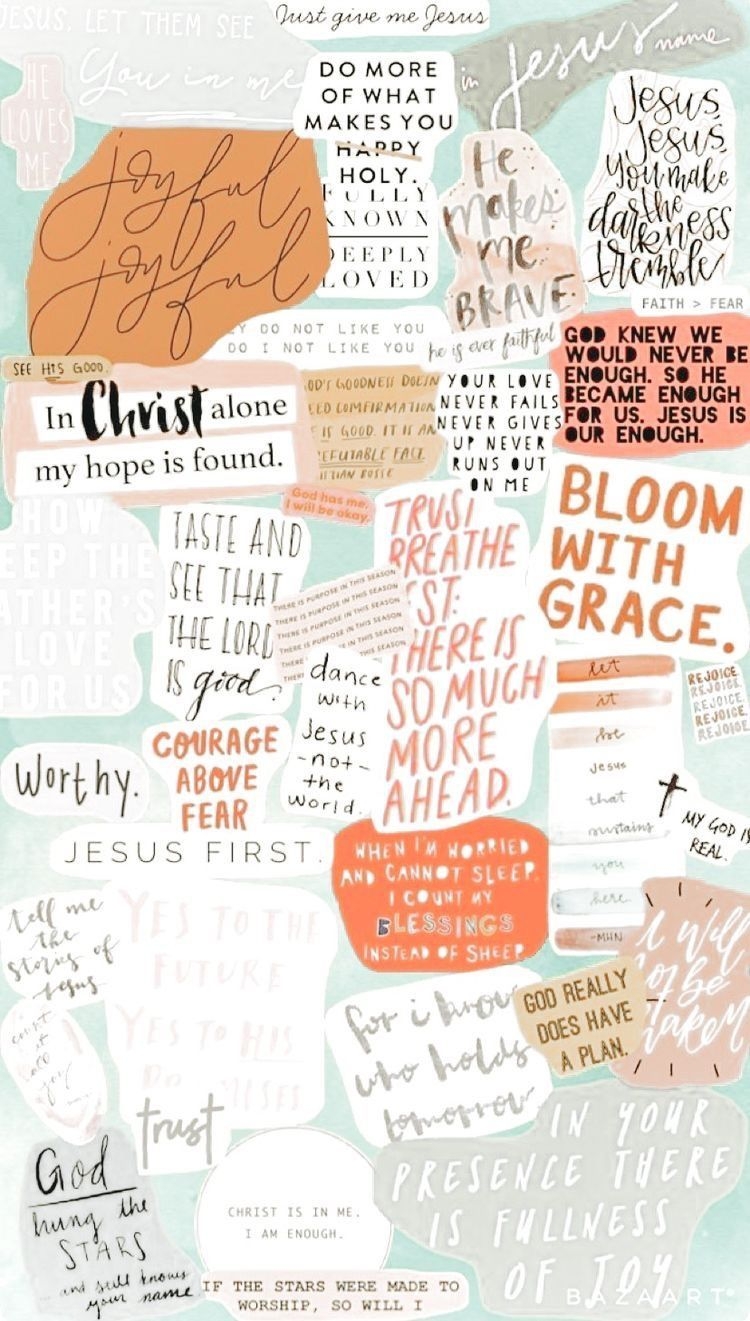 JESUS, LET THEM SEE
You in me
Just give me Jesus
in Jesus name
HE
LOVES
ME
DO MORE
OF WHAT
MAKES YOU
HAPPY
HOLY.
FULLY
KNOWN
DEEPLY
LOVED
joyful
joyful
He
makes
me
BRAVE.
Jesus,
Jesus,
you make
the
darkness
tremble
FAITH > FEAR
DO NOT LIKE YOU
DO I NOT LIKE YOU
he is ever faithful
GOD KNEW WE
WOULD NEVER BE
ENOUGH. SO HE
BECAME ENOUGH
FOR US. JESUS IS
OUR ENOUGH.
SEE HIS GOOD.
In Christ alone
my hope is found.
OD'S GOODNESS DOESN
ED COMFIRMATION
IS GOOD. IT IS AN
EFUTABLE FACT
YOUR LOVE
NEVER FAILS
NEVER GIVES
UP NEVER
RUNS OUT
ON ME
God has me,
I will be okay.
HOW
EEP THE
ATHER'S
LOVE
FOR US
TASTE AND
SEE THAT
THE LORD
IS good.
THERE IS PURPOSE IN THIS SEASON
THERE IS PURPOSE IN THIS SEASON
THERE IS PURPOSE IN THIS SEASON
THERE IS PURPOSE IN THIS SEASON
THERE IS IN THIS SEASON
THERE SEASON
TRUST
BREATHE
ST:
THERE IS
SO MUCH
MORE
AHEAD.
BLOOM
WITH
GRACE.
dance
with
Jesus
-not-
the
world.
let
it
be
Jesus
that
sustains
you
here
-MHN
REJOICE.
REJOICE.
REJOICE.
REJOICE.
REJOICE
Worthy.
COURAGE
ABOVE
FEAR
MY GOD IS
REAL.
JESUS FIRST.
WHEN I'M WORRIED
AND CANNOT SLEEP.
I COUNT MY
BLESSINGS
INSTEAD OF SHEEP
tell me
the
stories of
Jesus
YES TO THE
FUTURE
YES TO HIS
PROMISES
I will
not be
shaken
GOD REALLY
DOES HAVE
A PLAN.
for i know
who holds
tomorrow
count
it
all
joy
trust
God
hung the
STARS
and still knows
your name
CHRIST IS IN ME.
I AM ENOUGH.
IN YOUR
PRESENCE THERE
IS FULLNESS
OF JOY
IF THE STARS WERE MADE TO
WORSHIP, SO WILL I
BAZAART